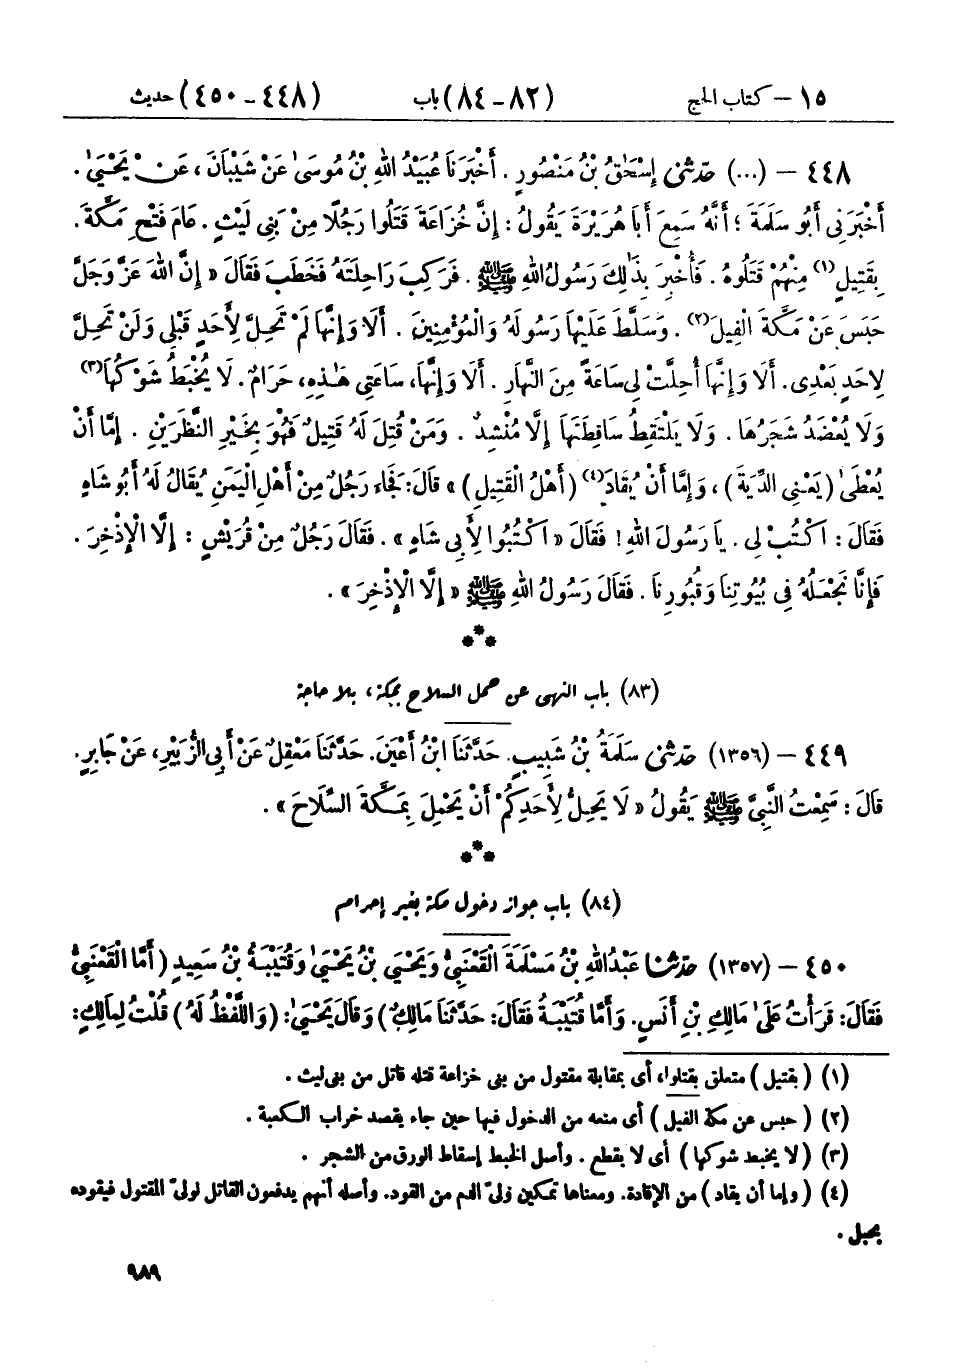 ١٥ – كتاب الحج (٨٢ – ٨٤) باب (٤٤٨ – ٤٥٠) حديث
٤٤٨ – (...) حَدَّثَنِي إِسْحَٰقُ بْنُ مَنْصُورٍ . أَخْبَرَنَا عُبَيْدُ اللهِ بْنُ مُوسَىٰ عَنْ شَيْبَانَ ، عَنْ يَحْيَىٰ .
أَخْبَرَنِي أَبُو سَلَمَةَ ؛ أَنَّهُ سَمِعَ أَبَا هُرَيْرَةَ يَقُولُ : إِنَّ خُزَاعَةَ قَتَلُوا رَجُلًا مِنْ بَنِي لَيْثٍ . عَامَ فَتْحِ مَكَّةَ .
بِقَتِيلٍ (١) مِنْهُمْ قَتَلُوهُ . فَأُخْبِرَ بِذَٰلِكَ رَسُولُ اللهِ ﷺ . فَرَكِبَ رَاحِلَتَهُ فَخَطَبَ فَقَالَ « إِنَّ اللهَ عَزَّ وَجَلَّ
حَبَسَ عَنْ مَكَّةَ الْفِيلَ (٢) . وَسَلَّطَ عَلَيْهَا رَسُولَهُ وَالْمُؤْمِنِينَ . أَلَا وَإِنَّهَا لَمْ تَحِلَّ لِأَحَدٍ قَبْلِي وَلَنْ تَحِلَّ
لِأَحَدٍ بَعْدِي . أَلَا وَإِنَّهَا أُحِلَّتْ لِي سَاعَةً مِنَ النَّهَارِ . أَلَا وَإِنَّهَا ، سَاعَتِي هَٰذِهِ ، حَرَامٌ . لَا يُخْبَطُ شَوْكُهَا (٣)
وَلَا يُعْضَدُ شَجَرُهَا . وَلَا يَلْتَقِطُ سَاقِطَتَهَا إِلَّا مُنْشِدٌ . وَمَنْ قُتِلَ لَهُ قَتِيلٌ فَهُوَ بِخَيْرِ النَّظَرَيْنِ . إِمَّا أَنْ
يُعْطَىٰ ( يَعْنِي الدِّيَةَ ) ، وَإِمَّا أَنْ يُقَادَ (٤) ( أَهْلُ الْقَتِيلِ ) » قَالَ : فَجَاءَ رَجُلٌ مِنْ أَهْلِ الْيَمَنِ يُقَالُ لَهُ أَبُو شَاهٍ
فَقَالَ : اكْتُبْ لِي . يَا رَسُولَ اللهِ ! فَقَالَ « اكْتُبُوا لِأَبِي شَاهٍ » . فَقَالَ رَجُلٌ مِنْ قُرَيْشٍ : إِلَّا الْإِذْخِرَ .
فَإِنَّا نَجْعَلُهُ فِي بُيُوتِنَا وَقُبُورِنَا . فَقَالَ رَسُولُ اللهِ ﷺ « إِلَّا الْإِذْخِرَ » .
***
(٨٣) باب النهى عن حمل السلاح بمكة ، بلا حاجة
٤٤٩ – (١٣٥٦) حَدَّثَنِي سَلَمَةُ بْنُ شَبِيبٍ . حَدَّثَنَا ابْنُ أَعْيَنَ . حَدَّثَنَا مَعْقِلٌ عَنْ أَبِي الزُّبَيْرِ ، عَنْ جَابِرٍ .
قَالَ : سَمِعْتُ النَّبِيَّ ﷺ يَقُولُ « لَا يَحِلُّ لِأَحَدِكُمْ أَنْ يَحْمِلَ بِمَكَّةَ السِّلَاحَ » .
***
(٨٤) باب جواز دخول مكة بغير إحرام
٤٥٠ – (١٣٥٧) حَدَّثَنَا عَبْدُ اللهِ بْنُ مَسْلَمَةَ الْقَعْنَبِيُّ وَيَحْيَىٰ بْنُ يَحْيَىٰ وَقُتَيْبَةُ بْنُ سَعِيدٍ ( أَمَّا الْقَعْنَبِيُّ
فَقَالَ : قَرَأْتُ عَلَىٰ مَالِكِ بْنِ أَنَسٍ . وَأَمَّا قُتَيْبَةُ فَقَالَ : حَدَّثَنَا مَالِكٌ ) وَقَالَ يَحْيَىٰ : ( وَاللَّفْظُ لَهُ ) قُلْتُ لِمَالِكٍ :
(١) ( بقتيل ) متعلق بقتلوا ، أى بمقابلة مقتول من بنى خزاعة قتله قاتل من بنى ليث .
(٢) ( حبس عن مكة الفيل ) أى منعه من الدخول فيها حين جاء يقصد خراب الكعبة .
(٣) ( لا يخبط شوكها ) أى لا يقطع . وأصل الخبط إسقاط الورق من الشجر .
(٤) ( وإما أن يقاد ) من الإقادة . ومعناها تمكين ولىّ الدم من القود . وأصله أنهم يدفعون القاتل لولىّ المقتول فيقوده
بحبل .
٩٨٩